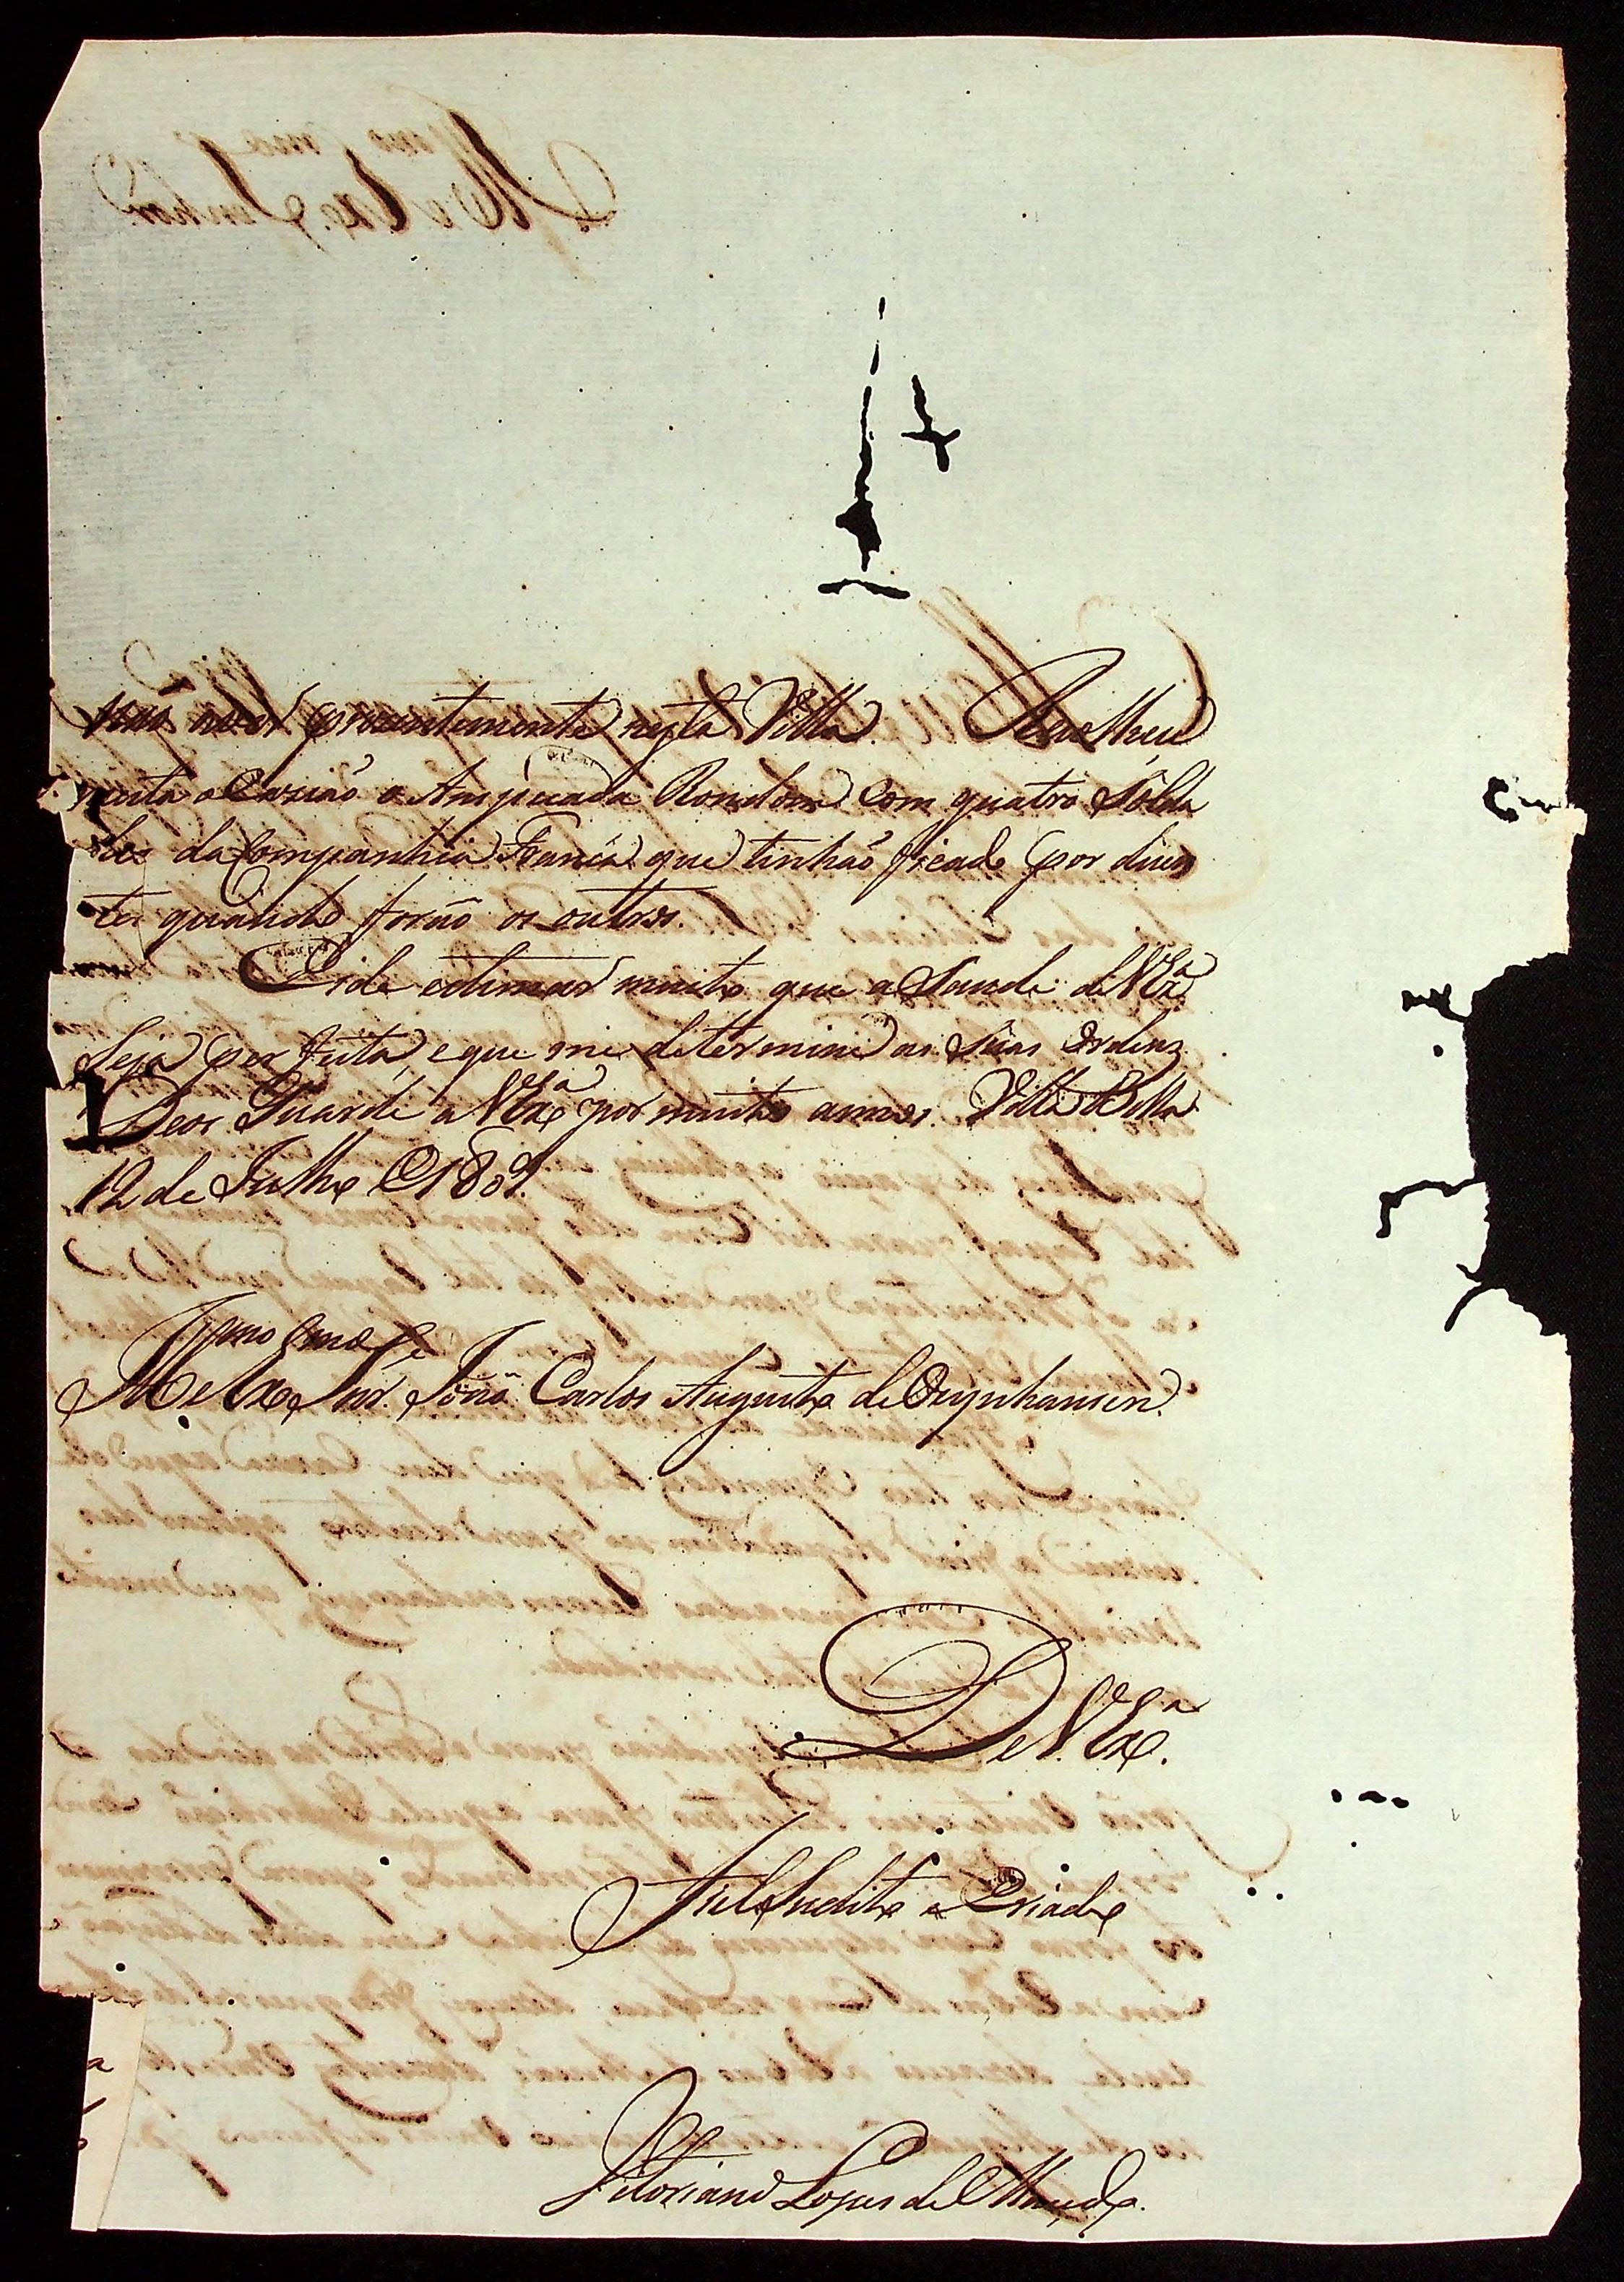 não haver prezentemente nesta Villa.
nesta o Anspeçada Rondom com quatro Solda
dos da Companhia Franca que tinhão ficado por doen
tes quando forão os outros.
Eide estimar muito que a Saude de V Exª
Seja perfeita, e que me determine as Suas Ordens.
Deos Guarde a V Exª por muitos annos. Villa Bella
12 de Julho de 1809.
Illmo e Exmo Snr. João Carlos Augusto de Oeynhausen.
De V. Exª.
Fiel Subdito e Criado
Vitoriano Lopes de Macedo.